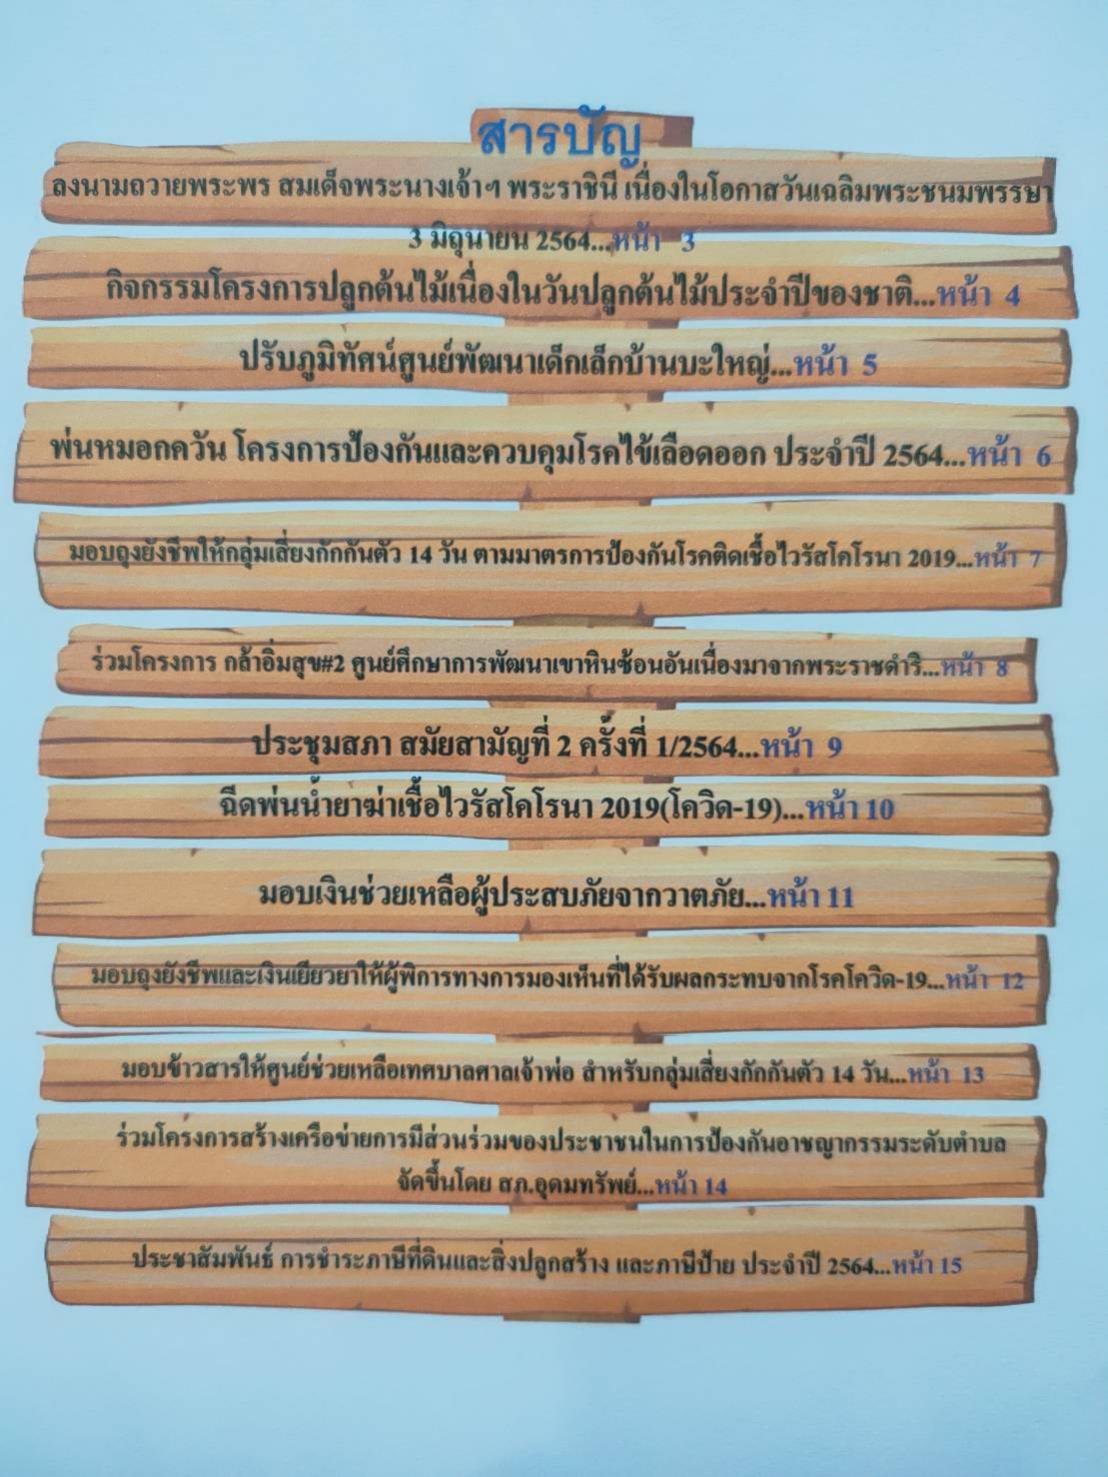 สารบัญ
ลงนามถวายพระพร สมเด็จพระนางเจ้าฯ พระราชินี เนื่องในโอกาสวันเฉลิมพระชนมพรรษา
3 มิถุนายน 2564...หน้า 3
กิจกรรมโครงการปลูกต้นไม้เนื่องในวันปลูกต้นไม้ประจำปีของชาติ...หน้า 4
ปรับภูมิทัศน์ศูนย์พัฒนาเด็กเล็กบ้านบะใหญ่...หน้า 5
พ่นหมอกควัน โครงการป้องกันและควบคุมโรคไข้เลือดออก ประจำปี 2564...หน้า 6
มอบถุงยังชีพให้กลุ่มเสี่ยงกักกันตัว 14 วัน ตามมาตรการป้องกันโรคติดเชื้อไวรัสโคโรนา 2019...หน้า 7
ร่วมโครงการ กล้าอิ่มสุข#2 ศูนย์ศึกษาการพัฒนาเขาหินซ้อนอันเนื่องมาจากพระราชดำริ...หน้า 8
ประชุมสภา สมัยสามัญที่ 2 ครั้งที่ 1/2564...หน้า 9
ฉีดพ่นน้ำยาฆ่าเชื้อไวรัสโคโรนา 2019(โควิด-19)...หน้า 10
มอบเงินช่วยเหลือผู้ประสบภัยจากวาตภัย...หน้า 11
มอบถุงยังชีพและเงินเยียวยาให้ผู้พิการทางการมองเห็นที่ได้รับผลกระทบจากโรคโควิด-19...หน้า 12
มอบข้าวสารให้ศูนย์ช่วยเหลือเทศบาลศาลเจ้าพ่อ สำหรับกลุ่มเสี่ยงกักกันตัว 14 วัน...หน้า 13
ร่วมโครงการสร้างเครือข่ายการมีส่วนร่วมของประชาชนในการป้องกันอาชญากรรมระดับตำบล
จัดขึ้นโดย สภ.อุดมทรัพย์...หน้า 14
ประชาสัมพันธ์ การชำระภาษีที่ดินและสิ่งปลูกสร้าง และภาษีป้าย ประจำปี 2564...หน้า 15